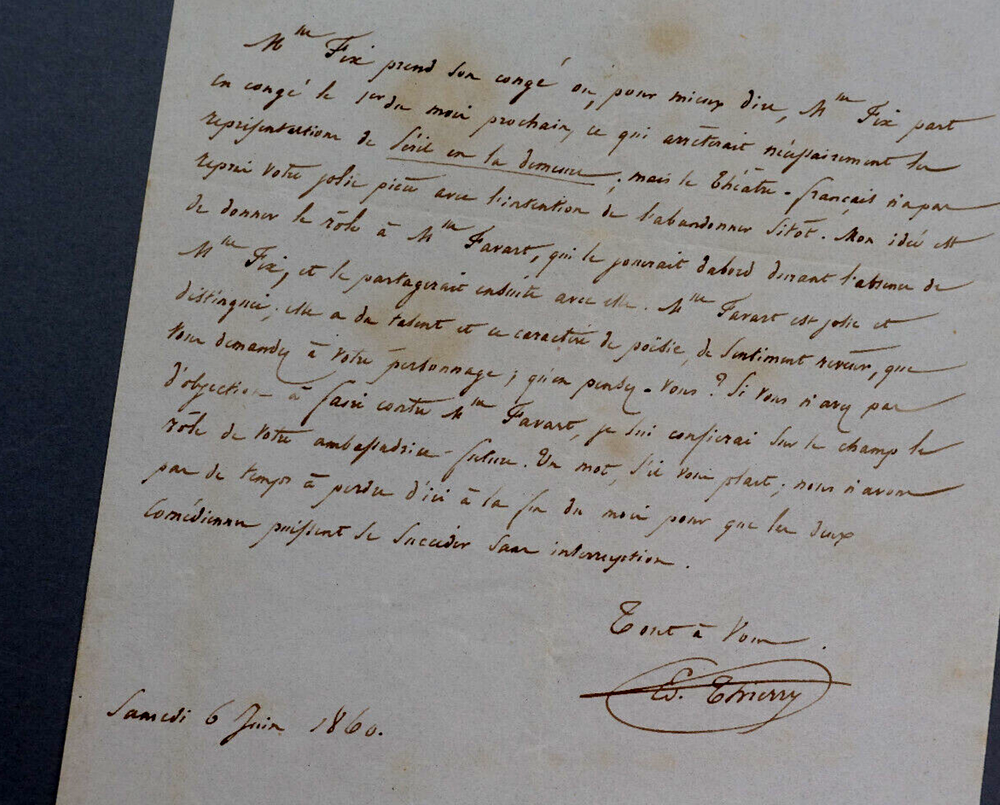 Mlle Fix prend son congé ou, pour mieux dire, Mlle Fix part
en congé le 1er du mois prochain, ce qui arrêterait nécessairement les
représentations de Péril en la demeure ; mais le Théâtre-français n'a pas
repris votre jolie pièce avec l'intention de l'abandonner sitôt. Mon idée est
de donner le rôle à Mlle Favart, qui le jouerait d'abord durant l'absence de
Mlle Fix, et le partagerait ensuite avec elle. Mlle Favart est jolie et
distinguée ; elle a du talent et ce caractère de poësie, de sentiment rêveur, que
vous demandez à votre personnage ; qu'en pensez-vous ? Si vous n'avez pas
d'objection à faire contre Mlle Favart, je lui confierai sur le champ le
rôle de votre ambassadrice future. Un mot, s'il vous plait ; nous n'avons
pas de temps à perdre d'ici à la fin du mois pour que les deux
comédiennes puissent se succéder sans interruption.
Tout à vous.
Ed. Thierry
Samedi 6 Juin 1860.